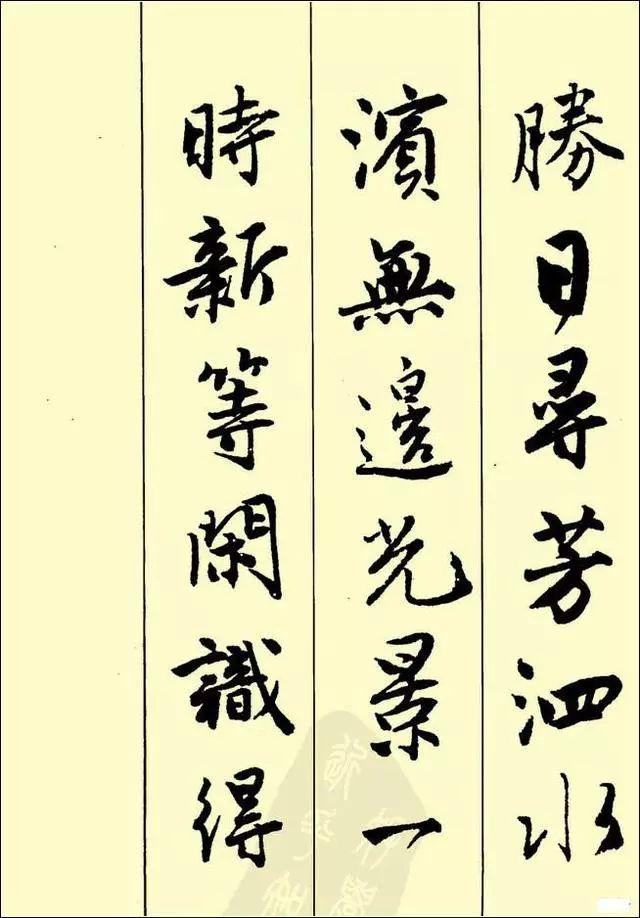 勝日尋芳泗水
濱無邊光景一
時新等閑識得